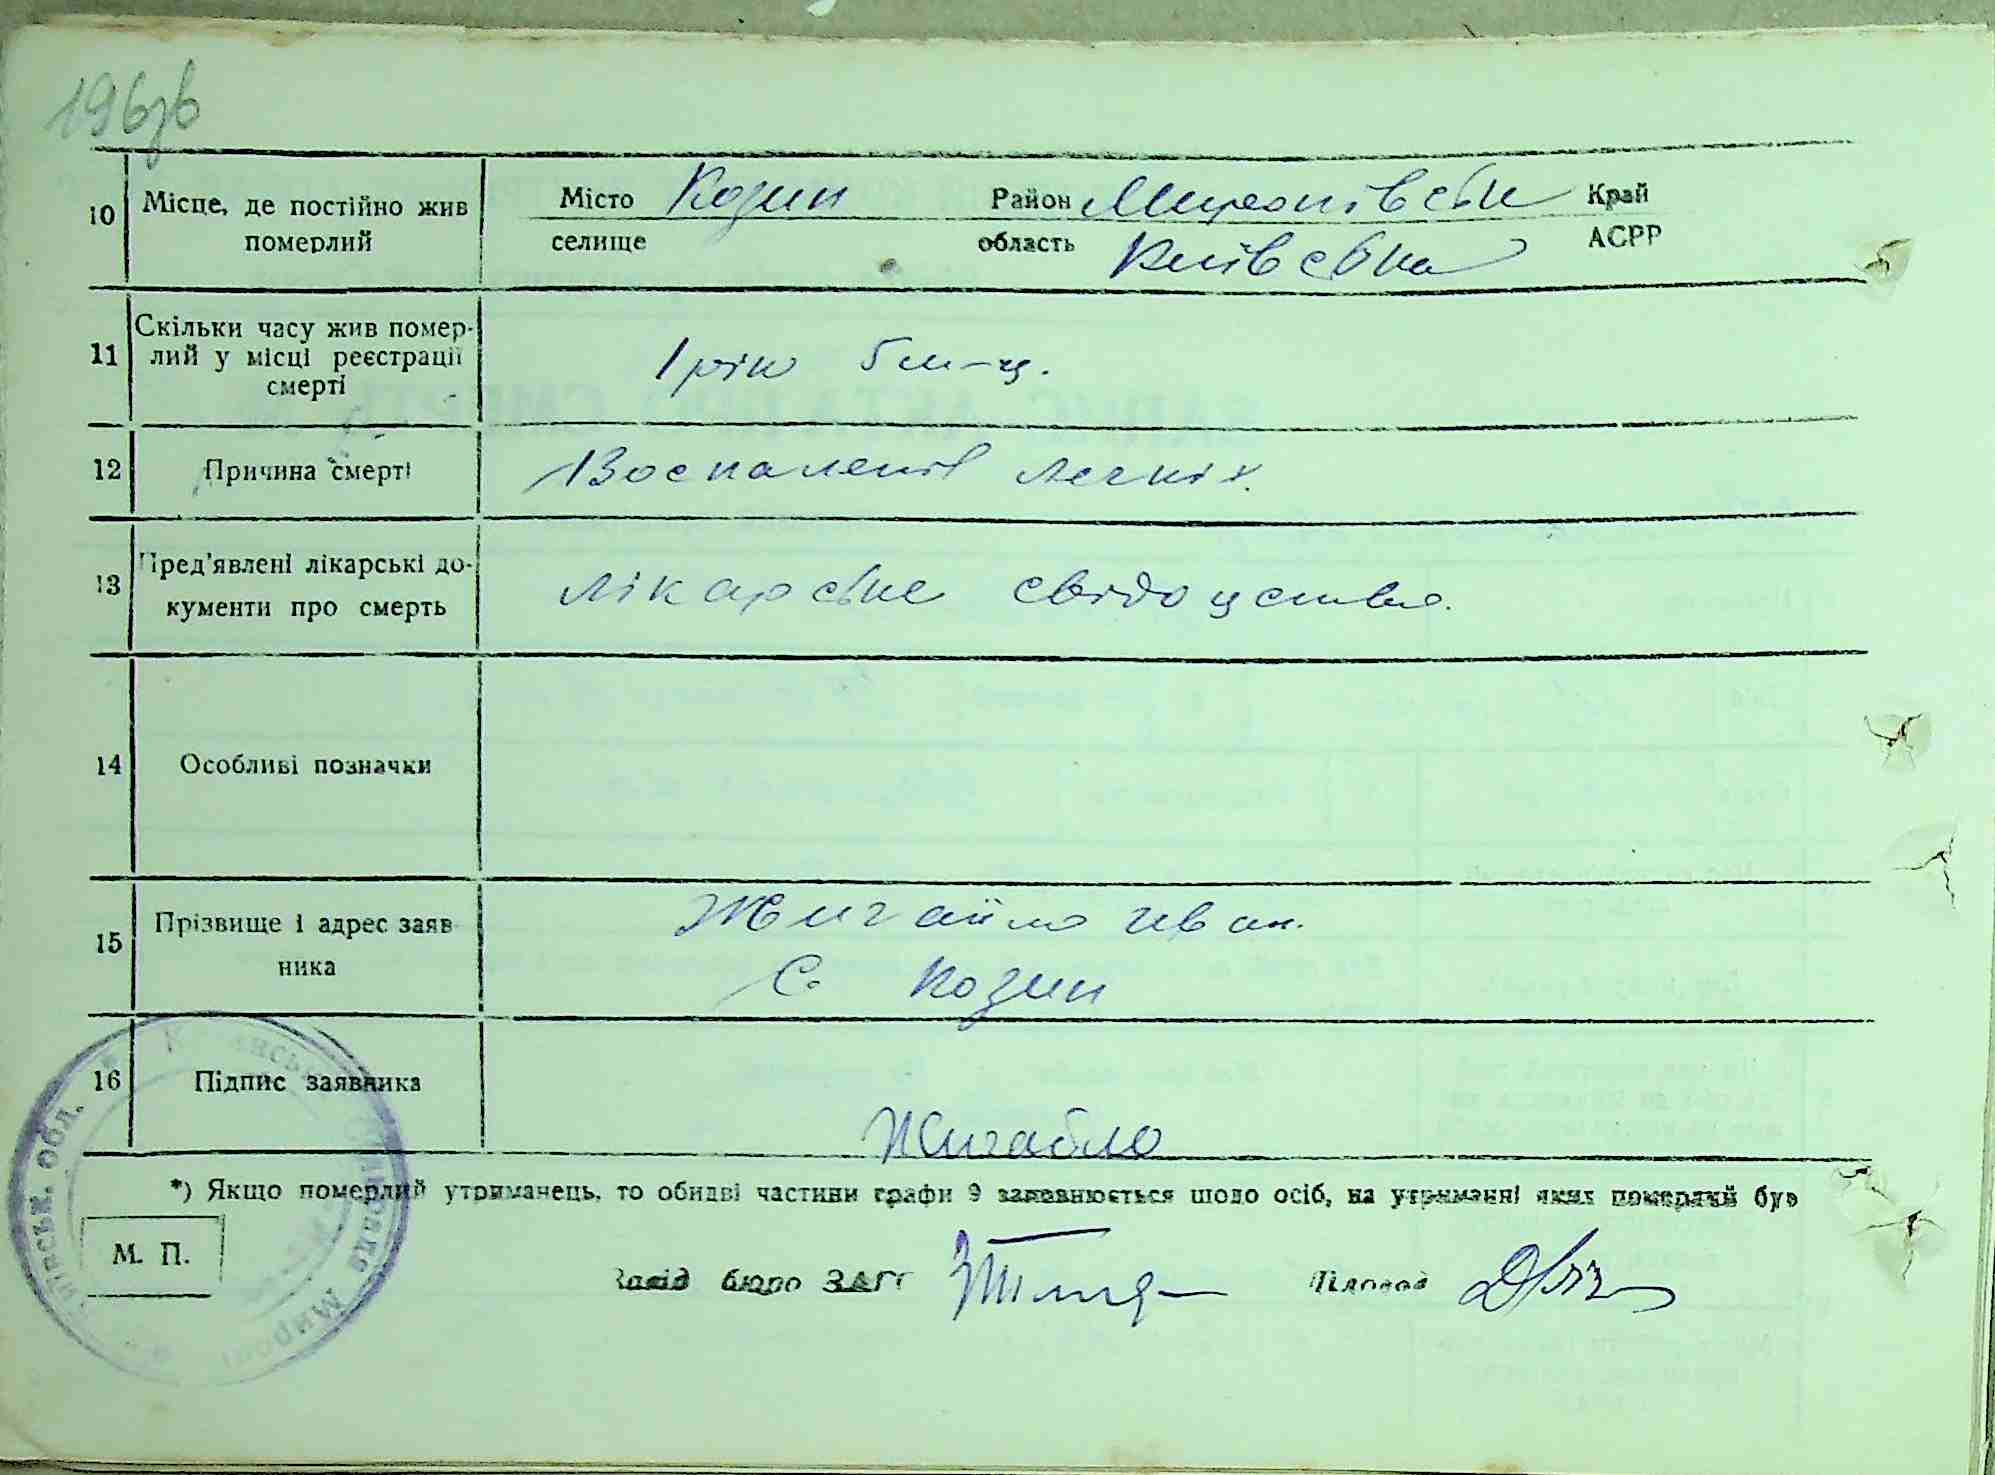 196зв
10 Місце, де постійно жив померлий Місто Козин Район Миронівськ Край
селище область Київська АСРР
11 Скільки часу жив помер-
лий у місці реєстрації
смерті
1 рік 5 м-ц.
12 Причина смерті Воспаленіє легкіх.
13 Пред'явлені лікарські до-
кументи про смерть
лікарське свідоцтво.
14 Особливі позначки
15 Прізвище і адрес заяв
ника
Жигайло Іван.
С. Козин
16 Підпис заявника
Жигайло
*) Якщо померлий утриманець, то обидві частини графи 9 заповнюється щодо осіб, на утриманні яких померлий був
М. П.
Завід бюро ЗАГС Діловод